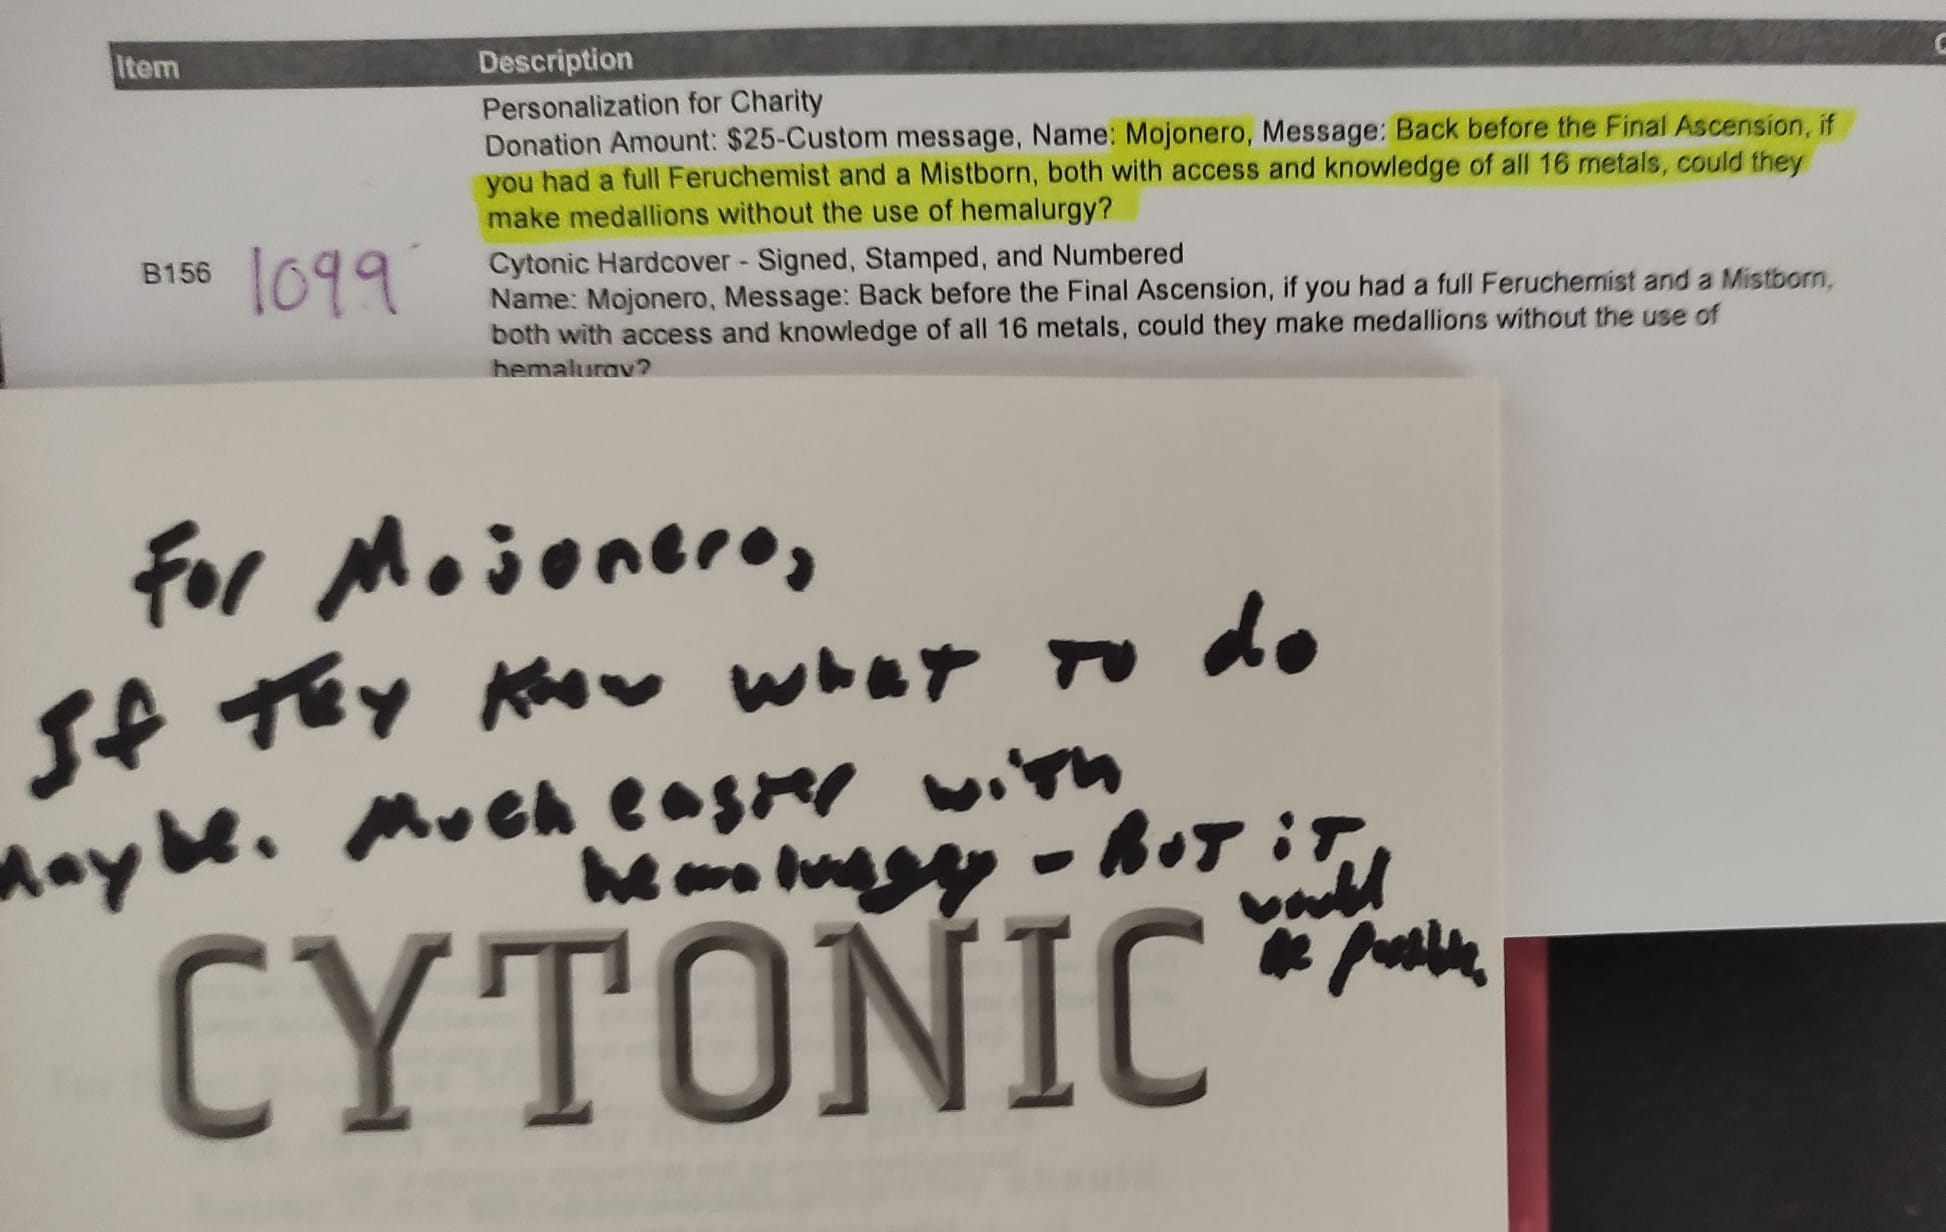 Item Description
Personalization for Charity
Donation Amount: $25-Custom message, Name: Mojonero, Message: Back before the Final Ascension, if
you had a full Feruchemist and a Mistborn, both with access and knowledge of all 16 metals, could they
make medallions without the use of hemalurgy?
B156 1099 Cytonic Hardcover - Signed, Stamped, and Numbered
Name: Mojonero, Message: Back before the Final Ascension, if you had a full Feruchemist and a Mistborn,
both with access and knowledge of all 16 metals, could they make medallions without the use of
hemalurgy?
For Mojonero,
If they know what to do
maybe. Much easier with
hemalurgy - But it
would
be possible.
CYTONIC